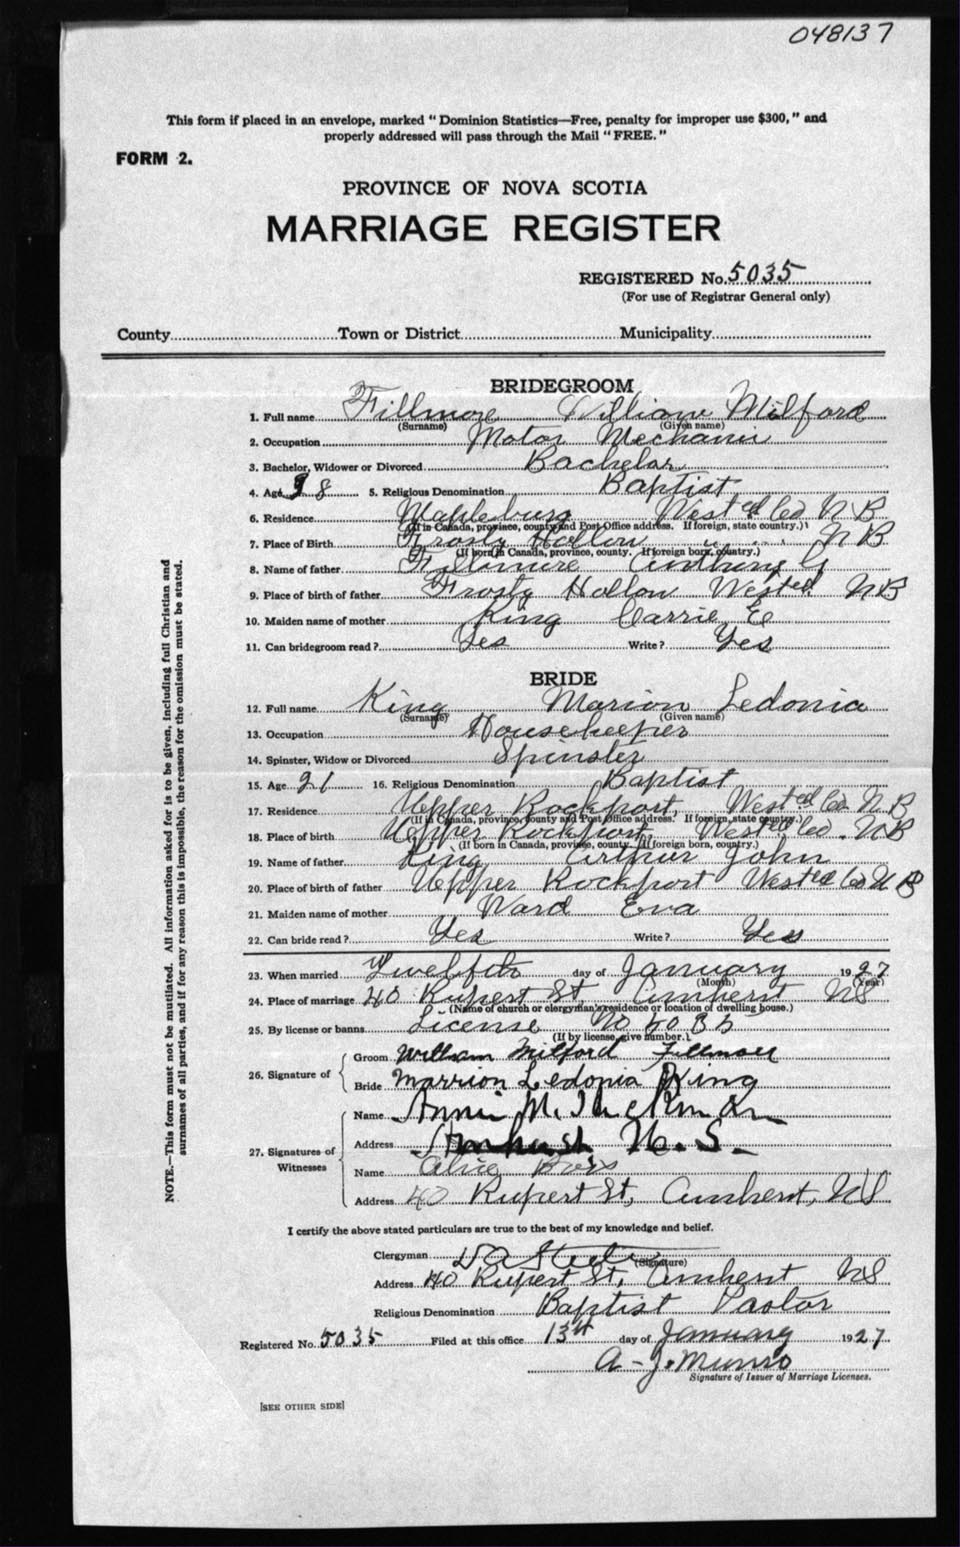 048137
This form if placed in an envelope, marked "Dominion Statistics—Free, penalty for improper use $300," and
properly addressed will pass through the Mail "FREE."
FORM 2.
PROVINCE OF NOVA SCOTIA
MARRIAGE REGISTER
REGISTERED No. 5035
(For use of Registrar General only)
County Town or District Municipality
BRIDEGROOM
1. Full name Fillmore William Milford
(Surname) (Given name)
2. Occupation Motor Mechanic
3. Bachelor, Widower or Divorced Bachelor
4. Age 8 5. Religious Denomination Baptist
6. Residence Mapleburg West'ed Co N B
(If in Canada, province, county and Post Office address. If foreign, state country.)
7. Place of Birth Frosty Hollow " " N B
(If born in Canada, province, county. If foreign born, country.)
8. Name of father Fillmore Anthony G
9. Place of birth of father Frosty Hollow West'ed N B
10. Maiden name of mother King Carrie E
11. Can bridegroom read? Yes Write? Yes
BRIDE
12. Full name King Marion Ledonia
(Surname) (Given name)
13. Occupation Housekeeper
14. Spinster, Widow or Divorced Spinster
15. Age 21 16. Religious Denomination Baptist
17. Residence Upper Rockport West'ed Co N B
(If in Canada, province, county and Post Office address. If foreign, state country.)
18. Place of birth Upper Rockport, West'ed Co. N B
(If born in Canada, province, county. If foreign born, country.)
19. Name of father King Arthur John
20. Place of birth of father Upper Rockport West'ed Co N B
21. Maiden name of mother Ward Eva
22. Can bride read? Yes Write? Yes
23. When married Twelfth day of January 1927
(Month) (Year)
24. Place of marriage 40 Rupert St, Amherst NS
(Name of church or clergyman's residence or location of dwelling house.)
25. By license or banns License No 5035
(If by license, give number.)
26. Signature of
Groom William Milford Fillmore
Bride Marrion Ledonia King
27. Signatures of Witnesses
Name Annie M.
Address Amherst N. S.
Name Alice
Address 40 Rupert St, Amherst, NS
I certify the above stated particulars are true to the best of my knowledge and belief.
Clergyman
(Signature)
Address 40 Rupert St, Amherst NS
Religious Denomination Baptist Pastor
Registered No. 5035 Filed at this office 13th day of January 1927
A. J. Munro
Signature of Issuer of Marriage Licenses.
[SEE OTHER SIDE]
NOTE.—This form must not be mutilated. All information asked for is to be given, including full Christian and
surnames of all parties, and if for any reason this is impossible, the reason for the omission must be stated.